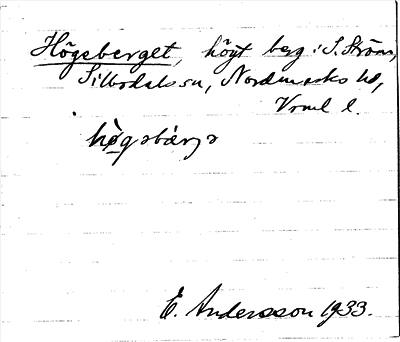 Högsberget, högt berg i S. Ström,
Silbodals sn, Nordmarks hd,
Vrml l.
E. Andersson 1933.